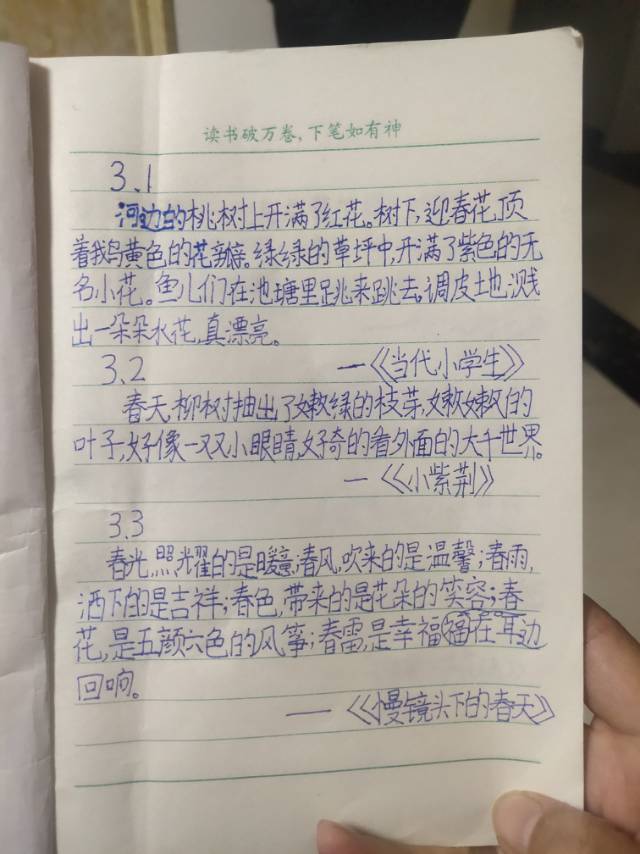 读书破万卷,下笔如有神
3.1
河边的桃树上开满了红花。树下,迎春花,顶
着鹅黄色的花瓣。绿绿的草坪中,开满了紫色的无
名小花。鱼儿们在池塘里跳来跳去。调皮地,溅
出一朵朵水花,真漂亮。
3.2 —《当代小学生》
春天,柳树抽出了嫩绿的枝芽,嫩嫩的
叶子,好像一双双小眼睛,好奇的看外面的大千世界。
—《小紫荆》
3.3
春光,照耀的是暖意;春风,吹来的是温馨;春雨,
洒下的是吉祥;春色,带来的是花朵的笑容;春
花,是五颜六色的风筝;春雷,是幸福在耳边
回响。
——《慢镜头下的春天》